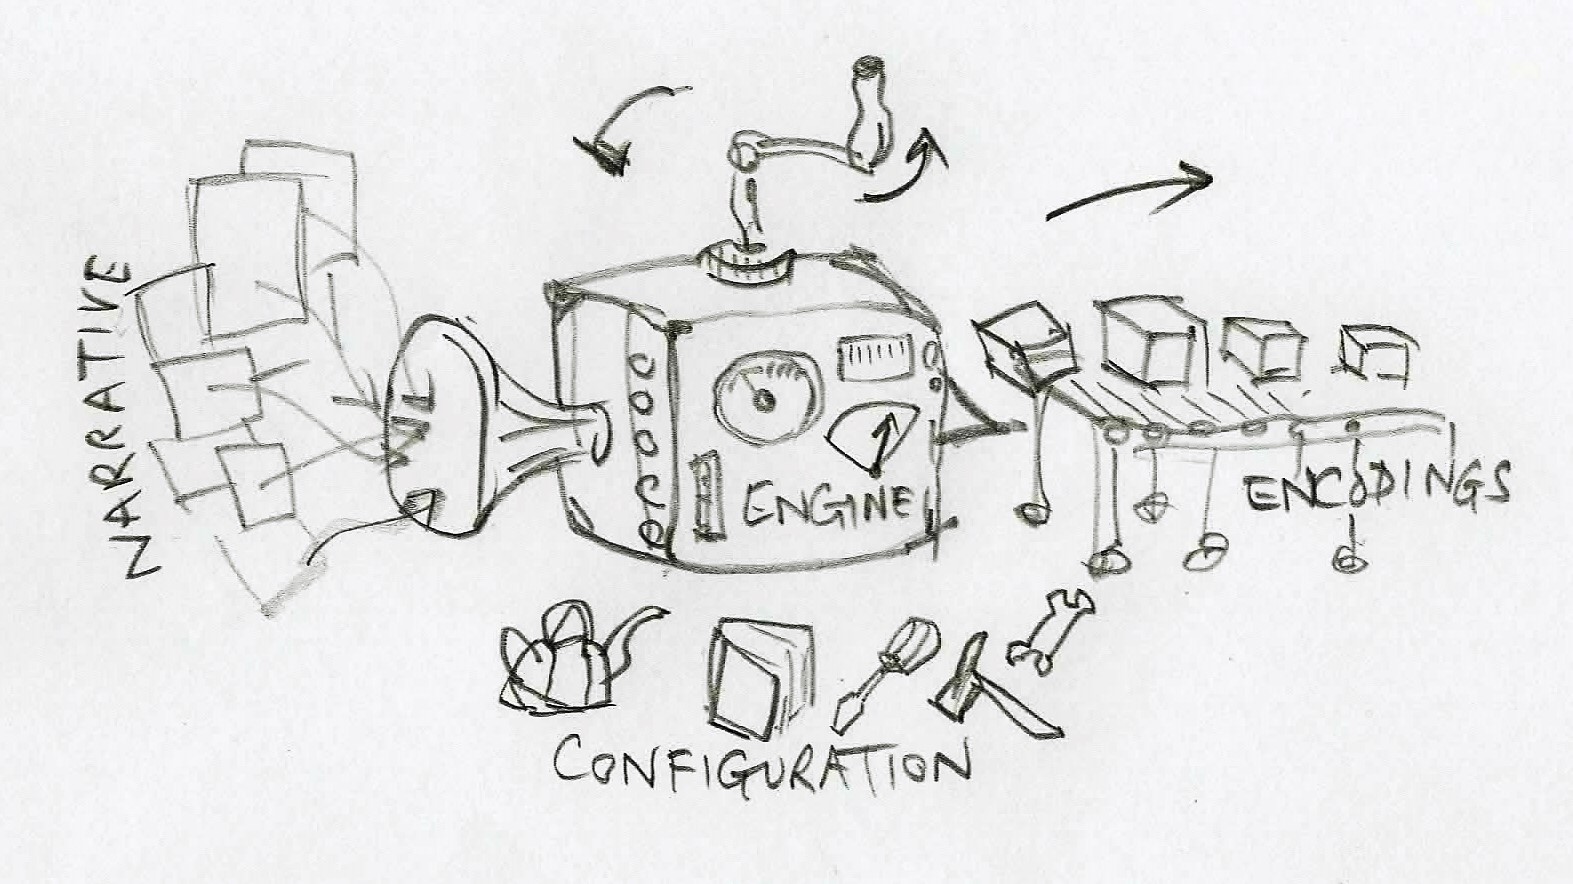 NARRATIVE
ENGINE
ENCODINGS
CONFIGURATION